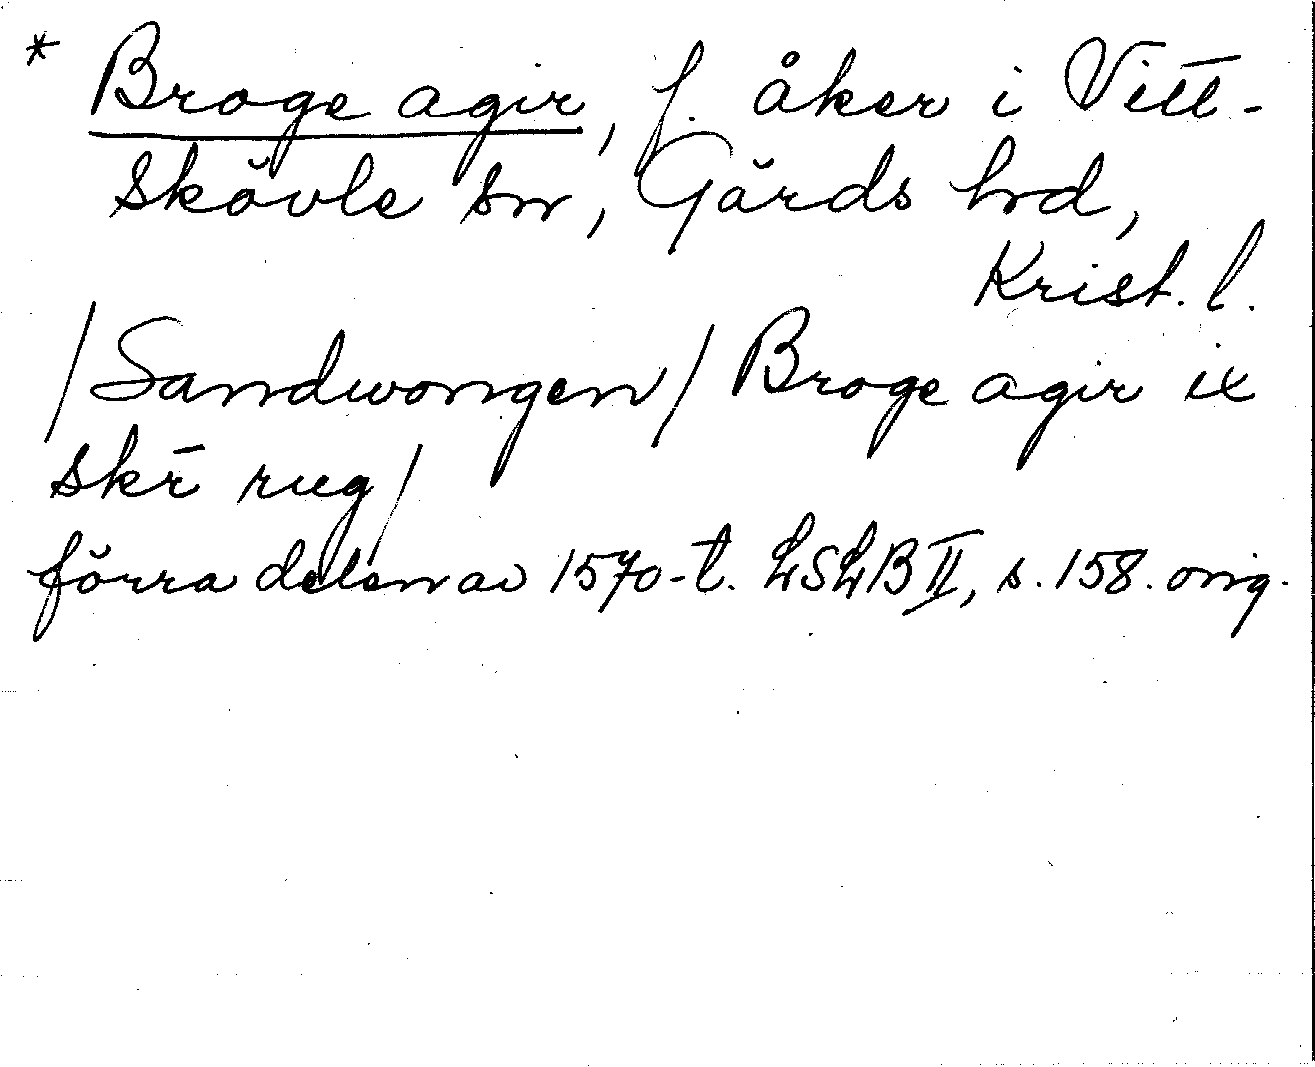 * Broge agir, f. åker i Vitt-
skövle sn, Gärds hrd,
Krist. l.
/Sandwongen/ Broge agir ix
skr̄ rug/
förra delen av 1570-t. LSLB II, s. 158. orig.